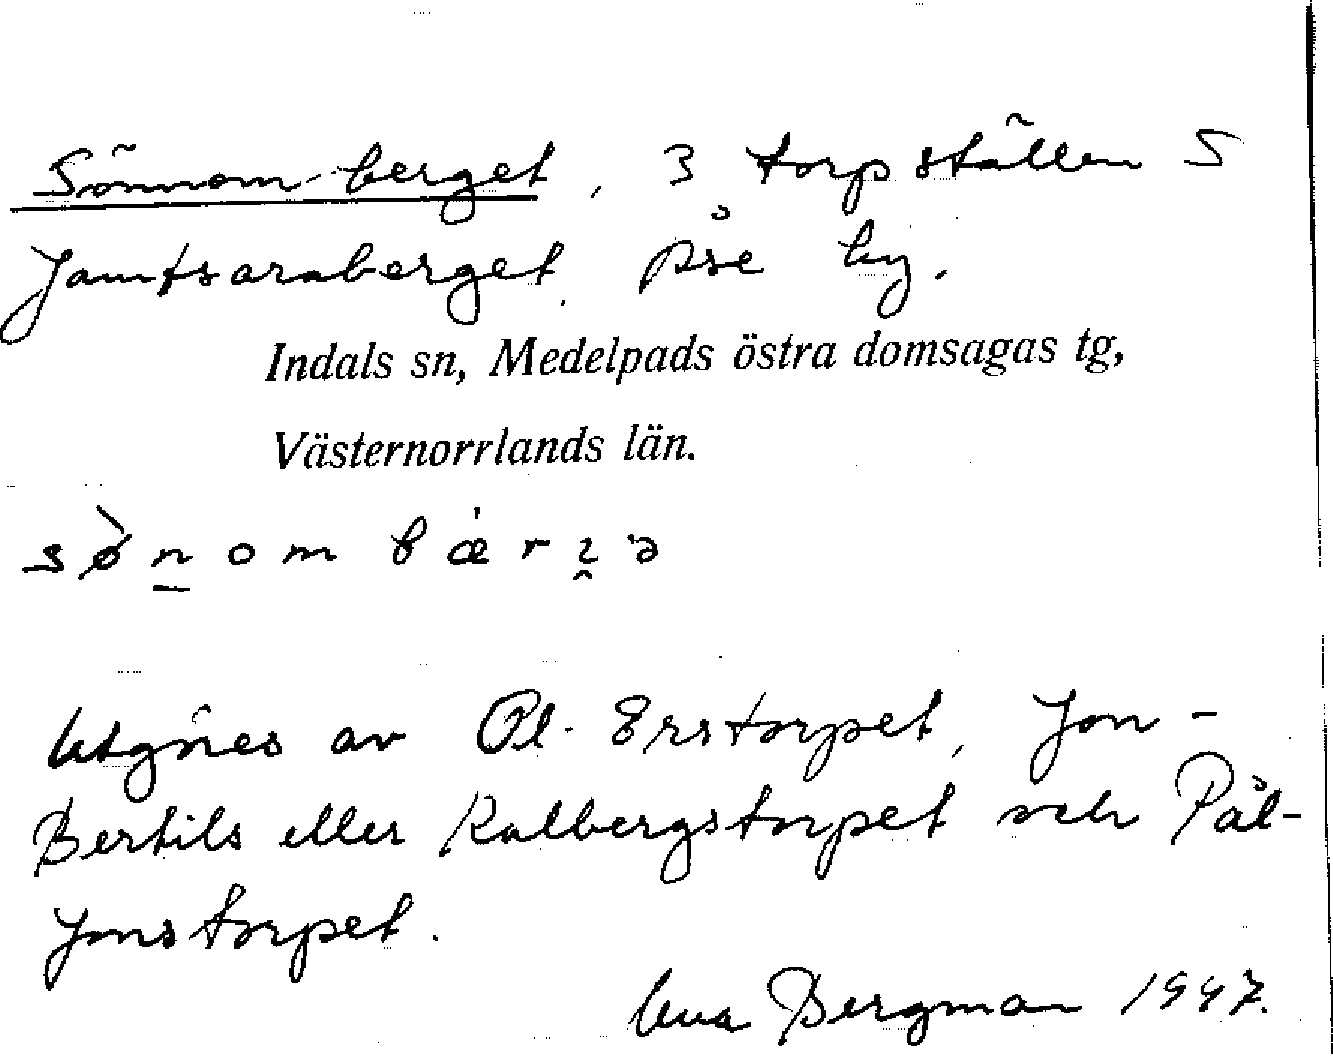 Sönnom-berget, 3 torpställen S
Jamtsaraberget. Åse by.
Indals sn, Medelpads östra domsagas tg,
Västernorrlands län.
utgöres av Pl-Erstorpet, Jon-
Bertils eller Kalbergstorpet och Pål-
Jonstorpet.
Bergman 1947.